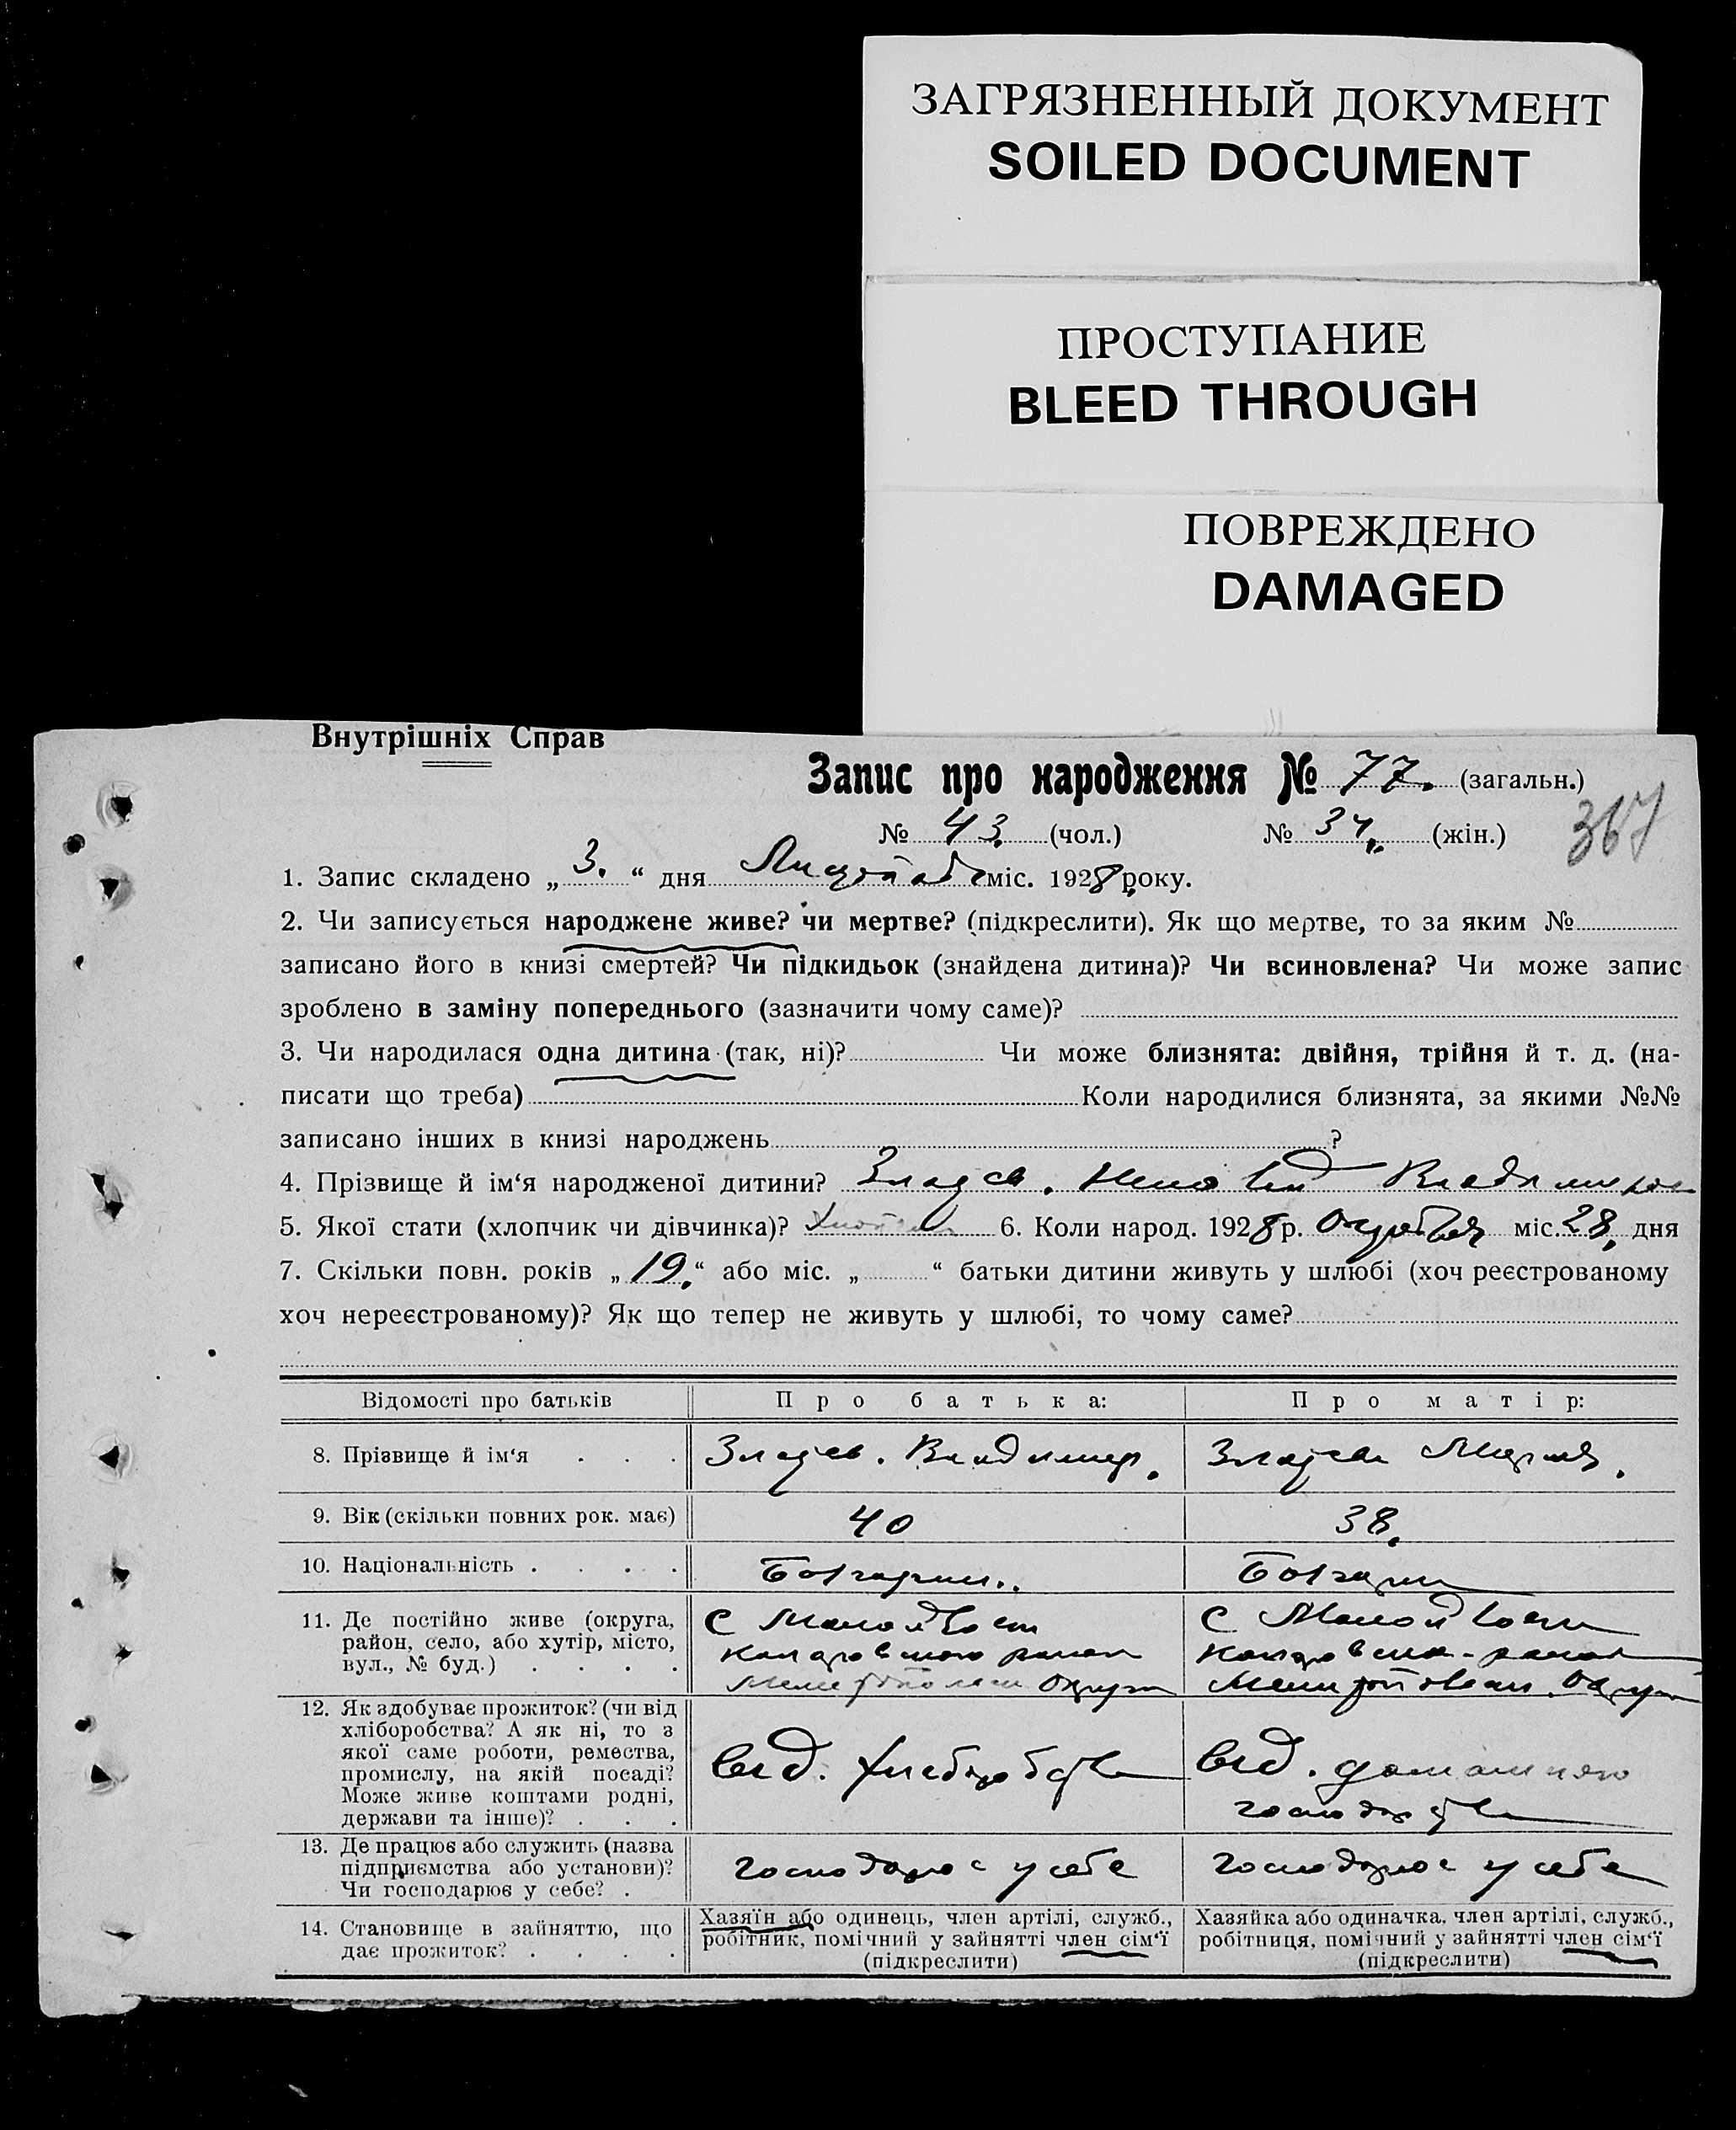 ЗАГРЯЗНЕННЫЙ ДОКУМЕНТ
SOILED DOCUMENT
ПРОСТУПАНИЕ
BLEED THROUGH
ПОВРЕЖДЕНО
DAMAGED
Внутрішніх Справ
Запис про народження № 77. (загальн.)
№ 43. (чол.) № 34. (жін.)
367
1. Запис складено „ 3. “ дня міс. 1928 року.
2. Чи записується народжене живе? чи мертве? (підкреслити). Як що мертве, то за яким №
записано його в книзі смертей? Чи підкидьок (знайдена дитина)? Чи всиновлена? Чи може запис
зроблено в заміну попереднього (зазначити чому саме)?
3. Чи народилася одна дитина (так, ні)? Чи може близнята: двійня, трійня й т. д. (на-
писати що треба) Коли народилися близнята, за якими №№
записано інших в книзі народжень ?
4. Прізвище й ім‘я народженої дитини?
5. Якої стати (хлопчик чи дівчинка)? 6. Коли народ. 1928 р. Октября міс. 28, дня
7. Скільки повн. років „ 19. “ або міс. „ “ батьки дитини живуть у шлюбі (хоч реєстрованому
хоч нереєстрованому)? Як що тепер не живуть у шлюбі, то чому саме?
Відомості про батьків Про батька: Про матір:
8. Прізвище й ім‘я . . . Владимир. Мария.
9. Вік (скільки повних рок. має) 40 38.
10. Національність . . . . Болгарин..
11. Де постійно живе (округа,
район, село, або хутір, місто,
вул., № буд.) . . . .
с
с
12. Як здобуває прожиток? (чи від
хліборобства? А як ні, то з
якої саме роботи, ремества,
промислу, на якій посаді?
Може живе коштами родні,
держави та інше)? . . .
від. хліборобства
від. домашнього
господарства
13. Де працює або служить (назва
підприємства або установи)?
Чи господарює у себе? .
господарює у себе
господарює у себе
14. Становище в зайняттю, що
дає прожиток? . . . .
Хазяїн або одинець, член артілі, служб.,
робітник, помічний у зайнятті член сім‘ї
(підкреслити)
Хазяйка або одиначка, член артілі, служб.,
робітниця, помічний у зайнятті член сім‘ї
(підкреслити)